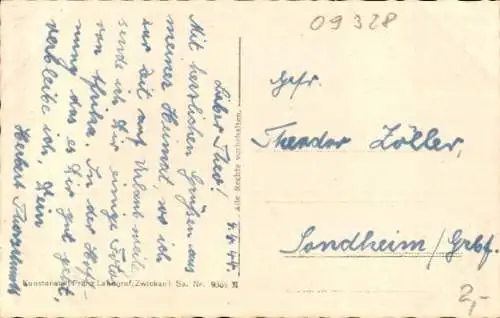 09328
Lieber Theo! 9.4.44.
Mit herzlichen Grüßen aus
meiner Heimat, wo ich
zur Zeit auf Urlaub weile,
sende ich Dir einige Fotos
von Afrika. In der Hoff-
nung das es Dir gut geht,
verbleibe ich, Dein
Herbert
Alle Rechte vorbehalten.
Gefr.
Theodor Zöller,
Sondheim/Grbf.
2,-
Kunstanstalt Franz Landgraf, Zwickau i. Sa. Nr.